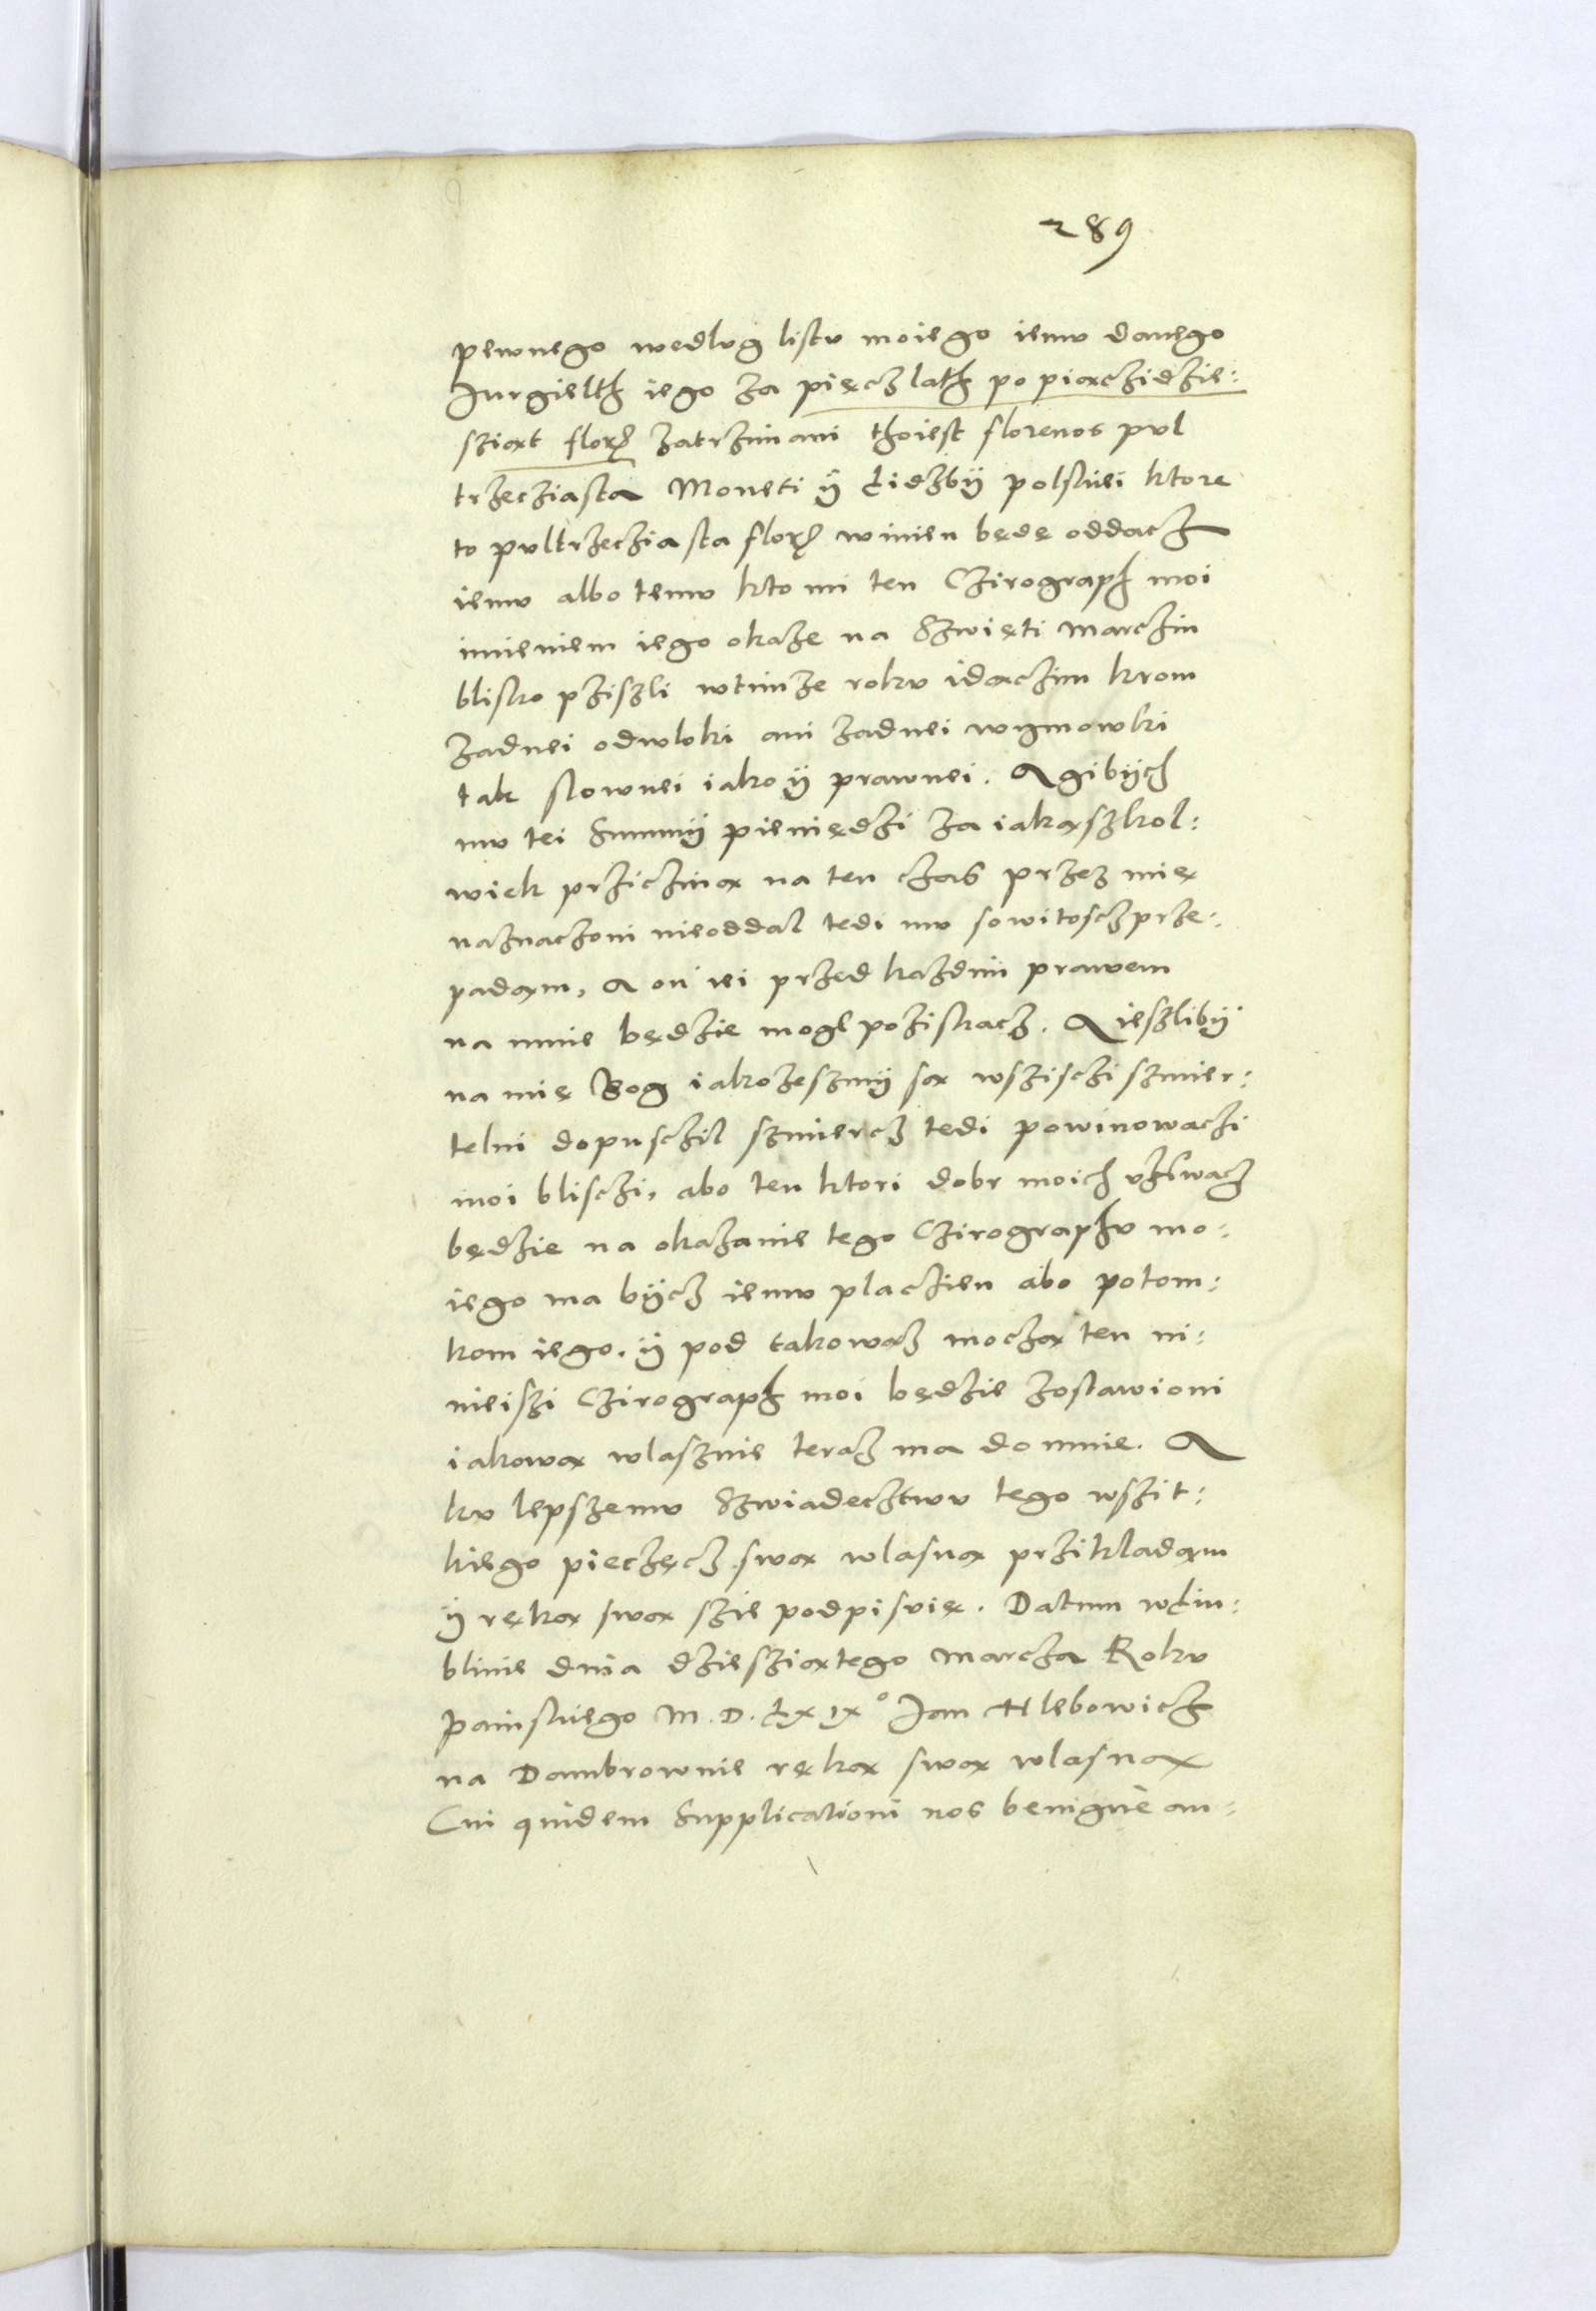 289
pewnego wedlvg listv moiego iemv danego
Jurgielth iego za pięcz lath po piączidzie:
sziąt florz zatrzimani thoiest florenos pvl
trzecziasta Moneti ÿ Lidzbÿ polskiei ktore
to pvltrzecziasta florz winien będę oddacz
iemv albo temv kto mi ten Czirograph moi
imieniem iego okaze na Szwięti Marczin
blisko pziszli wtimze rokv idączim krom
zadnei odwloki ani zadnei wymowki
tak slownei iako ÿ prawnei. A gibÿch
mv tei Summÿ pieniędzi za iakąszkol:
wiek przicziną na ten czas przez mię
naznaczoni nieoddal tedi mv sowitoscz prze:
padam, A on iei przed kazdim prawem
na mnie będzie mogl pozistkacz. A ieszlibÿ
na mię Bog iakozeszmÿ są wsziszczi szmier:
telni dopusczil szmiercz tedi powinowaczi
moi bliszczi, abo ten ktori dobr moich vziwacz
będzie na okazanie tego Czirographv mo:
iego ma bÿcz iemv placzien abo potom:
kom iego. ÿ pod takowąz moczą ten ni:
nieiszi Czirograph moi będzie zostawioni
iakową wlasznie teraz ma do mnie. A
kv lepszemv Szwiadecztwv tego wszit:
kiego pieczęcz swą wlasną przikladam
ÿ ręką swą szie podpisvię. Datum w Liu:
blinie dnia dziesziątego Marcza Rokv
Painskiego M. D. LXIX° Jan Hlebowicz
na Dambrownie ręką swą wlasną
Cui quidem Supplicationi nos benigne an: